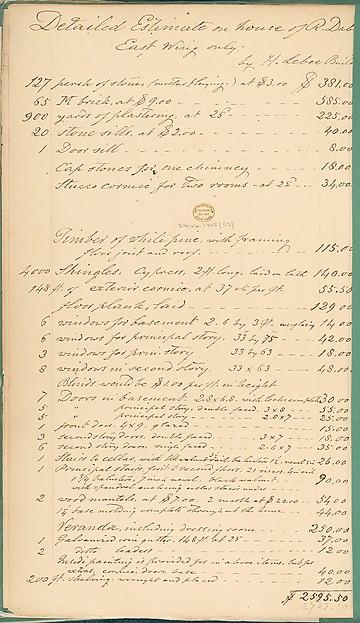 Detailed Estimate on house of R. Dab
East Wing only.
by H. Lebox Buil
127 perch of stones, at $3.00 $ 381.00
65 M brick, at $9.00 585.00
900 yards of plastering, at 25 225.00
20 stone sills, at $2.00 40.00
1 Door sill 8.00
Cap stones for one chimney 18.00
Stucco cornice for Two rooms - at 25 34.00
Timber of white pine, with framing
floor joist and roof. 115.00
4000 Shingles. Cypress, 24 long, laid on lath 140.00
148 ft. of exterior cornice, at 37 per ft. 55.50
floor plank, laid 129.00
6 windows for basement 2.6 by 3 ft. 14.00
6 windows for principal story. 33 by 75 42.00
3 windows for prin. story 33 by 63 18.00
8 windows in second story. 33 x 63 48.00
Blinds would be $1.00 per ft. in height
7 Doors in basement. 2.8 x 6.8. 30.00
5 " principal story, double faced, 3 x 8 55.00
5 " principal story 2.8 x 7 25.00
1 front door. 4 x 9. glazed 15.00
3 second story doors, double faced 3 x 7 18.00
6 second story doors, single faced 2.6 x 7 35.00
1 Stairs to cellar, with 26.00
1 Principal Stairs, first to second floor. 21 risers,
black walnut. 90.00
2 wood mantels, at $7.00. 2 at $20.00 54.00
base molding complete throughout the house 44.00
Veranda, including dressing room 250.00
1 Galvanized iron gutter, 148 ft. at 25 37.00
2 ditto leaders 12.00
Inside painting is provided for in above items, but for
extras, cornice, doors, base 40.00
200 ft. shelving, wrought and placed 12.00
$ 2595.50